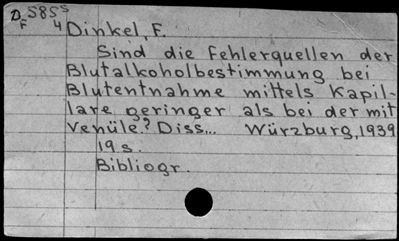 D585s
F 4 Dinkel, F.
Sind die Fehlerquellen der
Blutalkoholbestimmung bei
Blutentnahme mittels Kapil-
lare geringer als bei der mit
Venüle? Diss... Würzburg, 1939
19 s.
Bibliogr.